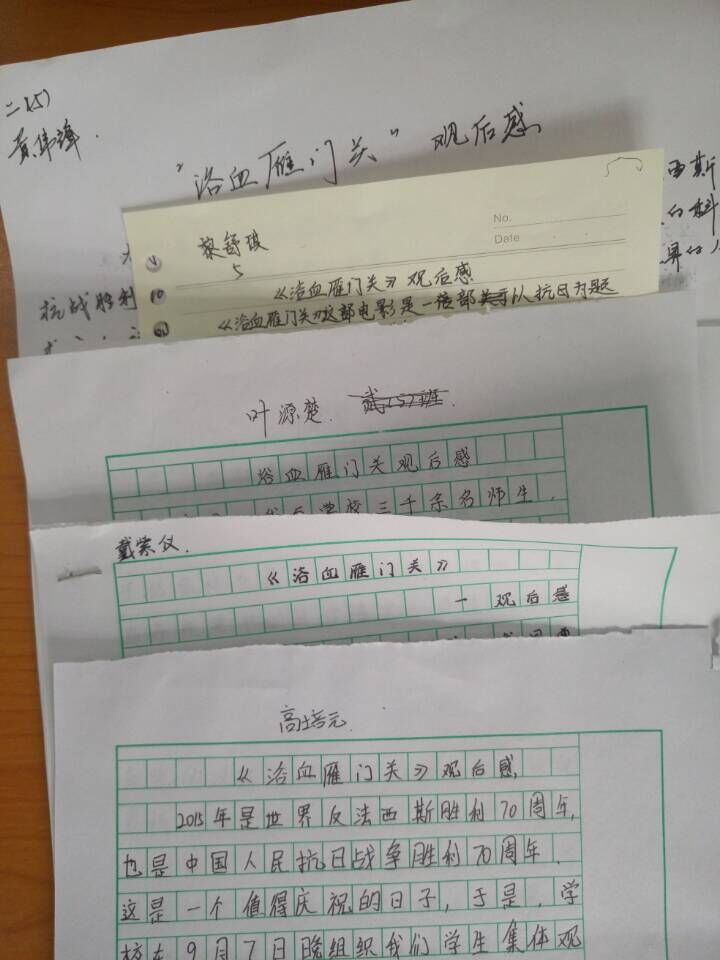 二(5)
黄伟锋.
"浴血雁门关"观后感
西斯
抗战胜利
黎舒琪
No.
5
Date
《浴血雁门关》观后感
《浴血雁门关》这部电影是一部以抗日为题
叶源楚. 贰(5)班.
浴血雁门关观后感
三千余名师生,
戴紫仪.
《浴血雁门关》
一 观后感
高培元.
《浴血雁门关》观后感,
2015年是世界反法西斯胜利70周年,
也是中国人民抗日战争胜利70周年.
这是一个值得庆祝的日子,于是,学
校在9月7日晚组织我们学生集体观